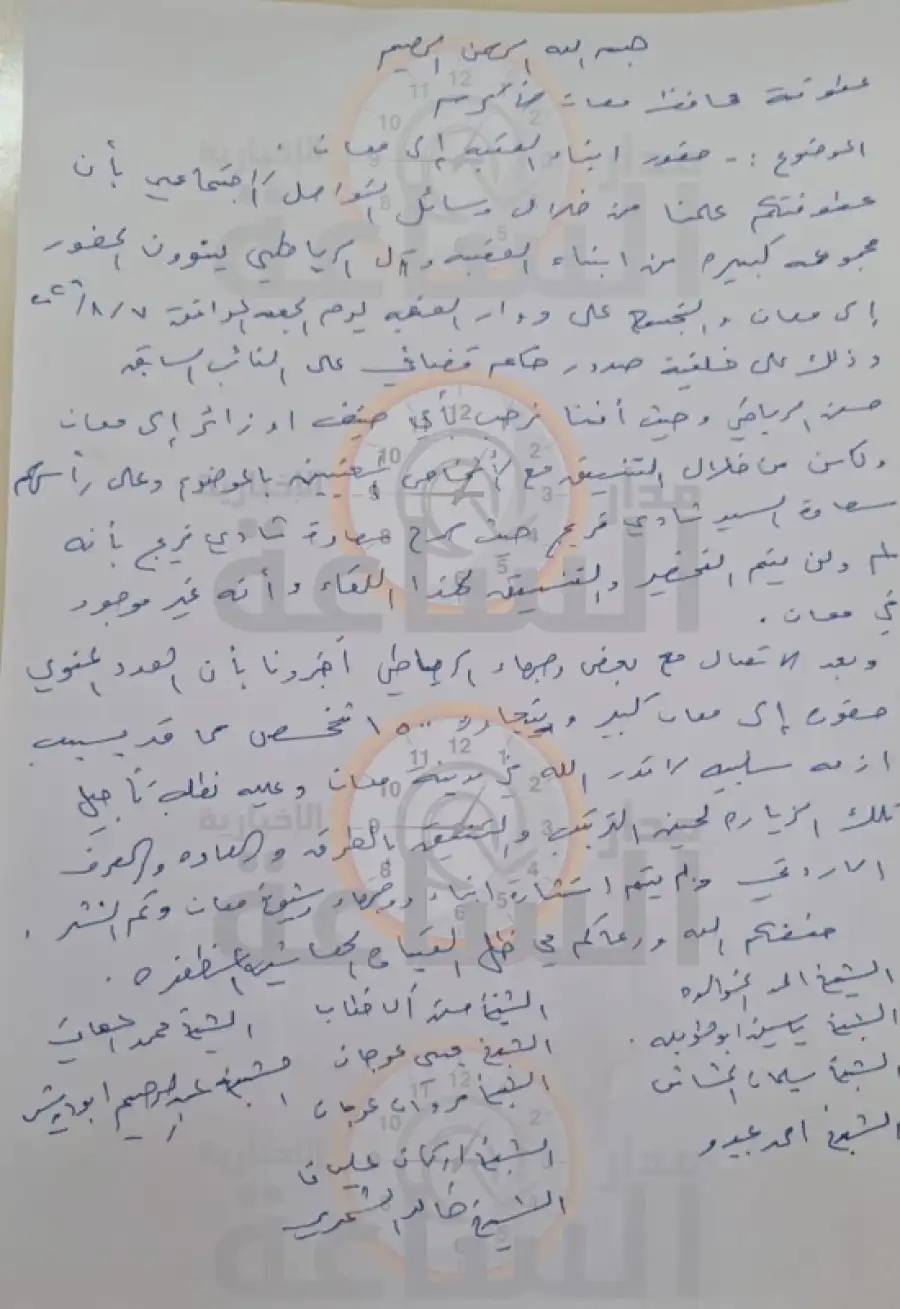 بسم الله الرحمن الرحيم
عطوفة محافظ معان الأكرم
الموضوع :- حضور ابناء العقبه إلى معان .
عطوفتكم علمنا من خلال وسائل التواصل الاجتماعي بأن
مجموعه كبيره من ابناء العقبه وآل الرياطي ينوون الحضور
إلى معان والتجمع على دوار العقبه يوم الجمعه الموافق ٨/٧/
وذلك على خلفية صدور حكم قضائي على النائب السابق
حسن الرياطي وحيث أننا نرحب بأي ضيف او زائر إلى معان
ولكن من خلال التنسيق مع الأشخاص المعنيين بالموضوع وعلى رأسهم
سعادة السيد شادي فريج حيث صرح سعادة شادي فريج بأنه
لم ولن يتم التحضير والتنسيق لهذا اللقاء وأنه غير موجود
في معان .
وبعد الاتصال مع بعض وجهاء الرياطي أخبرونا بأن العدد المنوي
حضوره إلى معان كبير ويتجاوز ١٥٠٠ شخص مما قد يسبب
ازمه سلبيه لا قدر الله في مدينة معان وعليه نطلب تأجيل
تلك الزياره لحين الترتيب والتنسيق بالطرق والعاده والعرف
الاردني ولم يتم استشارة ابناء ووجهاء وشيوخ معان وتم النشر .
حفظكم الله ورعاكم في ظل القيادة الهاشمية المظفره .
الشيخ الخوالده الشيخ حسن آل خطاب الشيخ محمد
الشيخ ياسين ابو طويله . الشيخ عيسى عوجان الشيخ عبد الرحيم ابو درويش
الشيخ سليمان الشيخ مروان عوجان
الشيخ احمد عبيدو الشيخ اركان عليان
الشيخ خالد الشمري
مدار الساعة الاخبارية